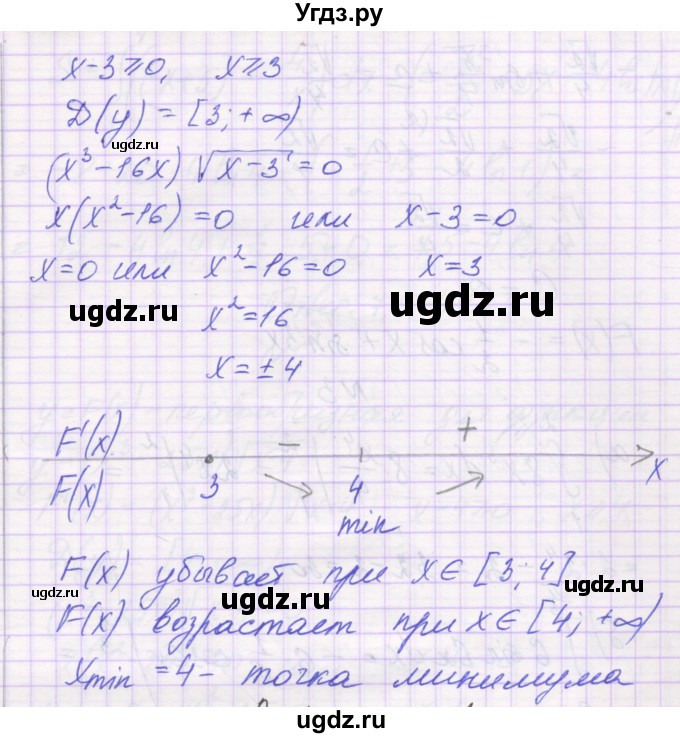 Угдз.ру
x-3⩾0,  x⩾3
D(y) = [3; +∞)
ugdz.ru
(x³-16x) √(x-3) = 0
x(x²-16) = 0 или x-3=0
x=0 или x²-16=0 x=3
ugdz.ru ugdz.ru
x²=16
x=±4
F'(x) - +
F(x) 3 4 x
min
F(x) убывает при x∈[3; 4]
ugdz.ru ugdz.ru ugdz.ru
F(x) возрастает при x∈[4; +∞)
x min = 4 - точка минимума
ugdz.ru
Угдз.ру